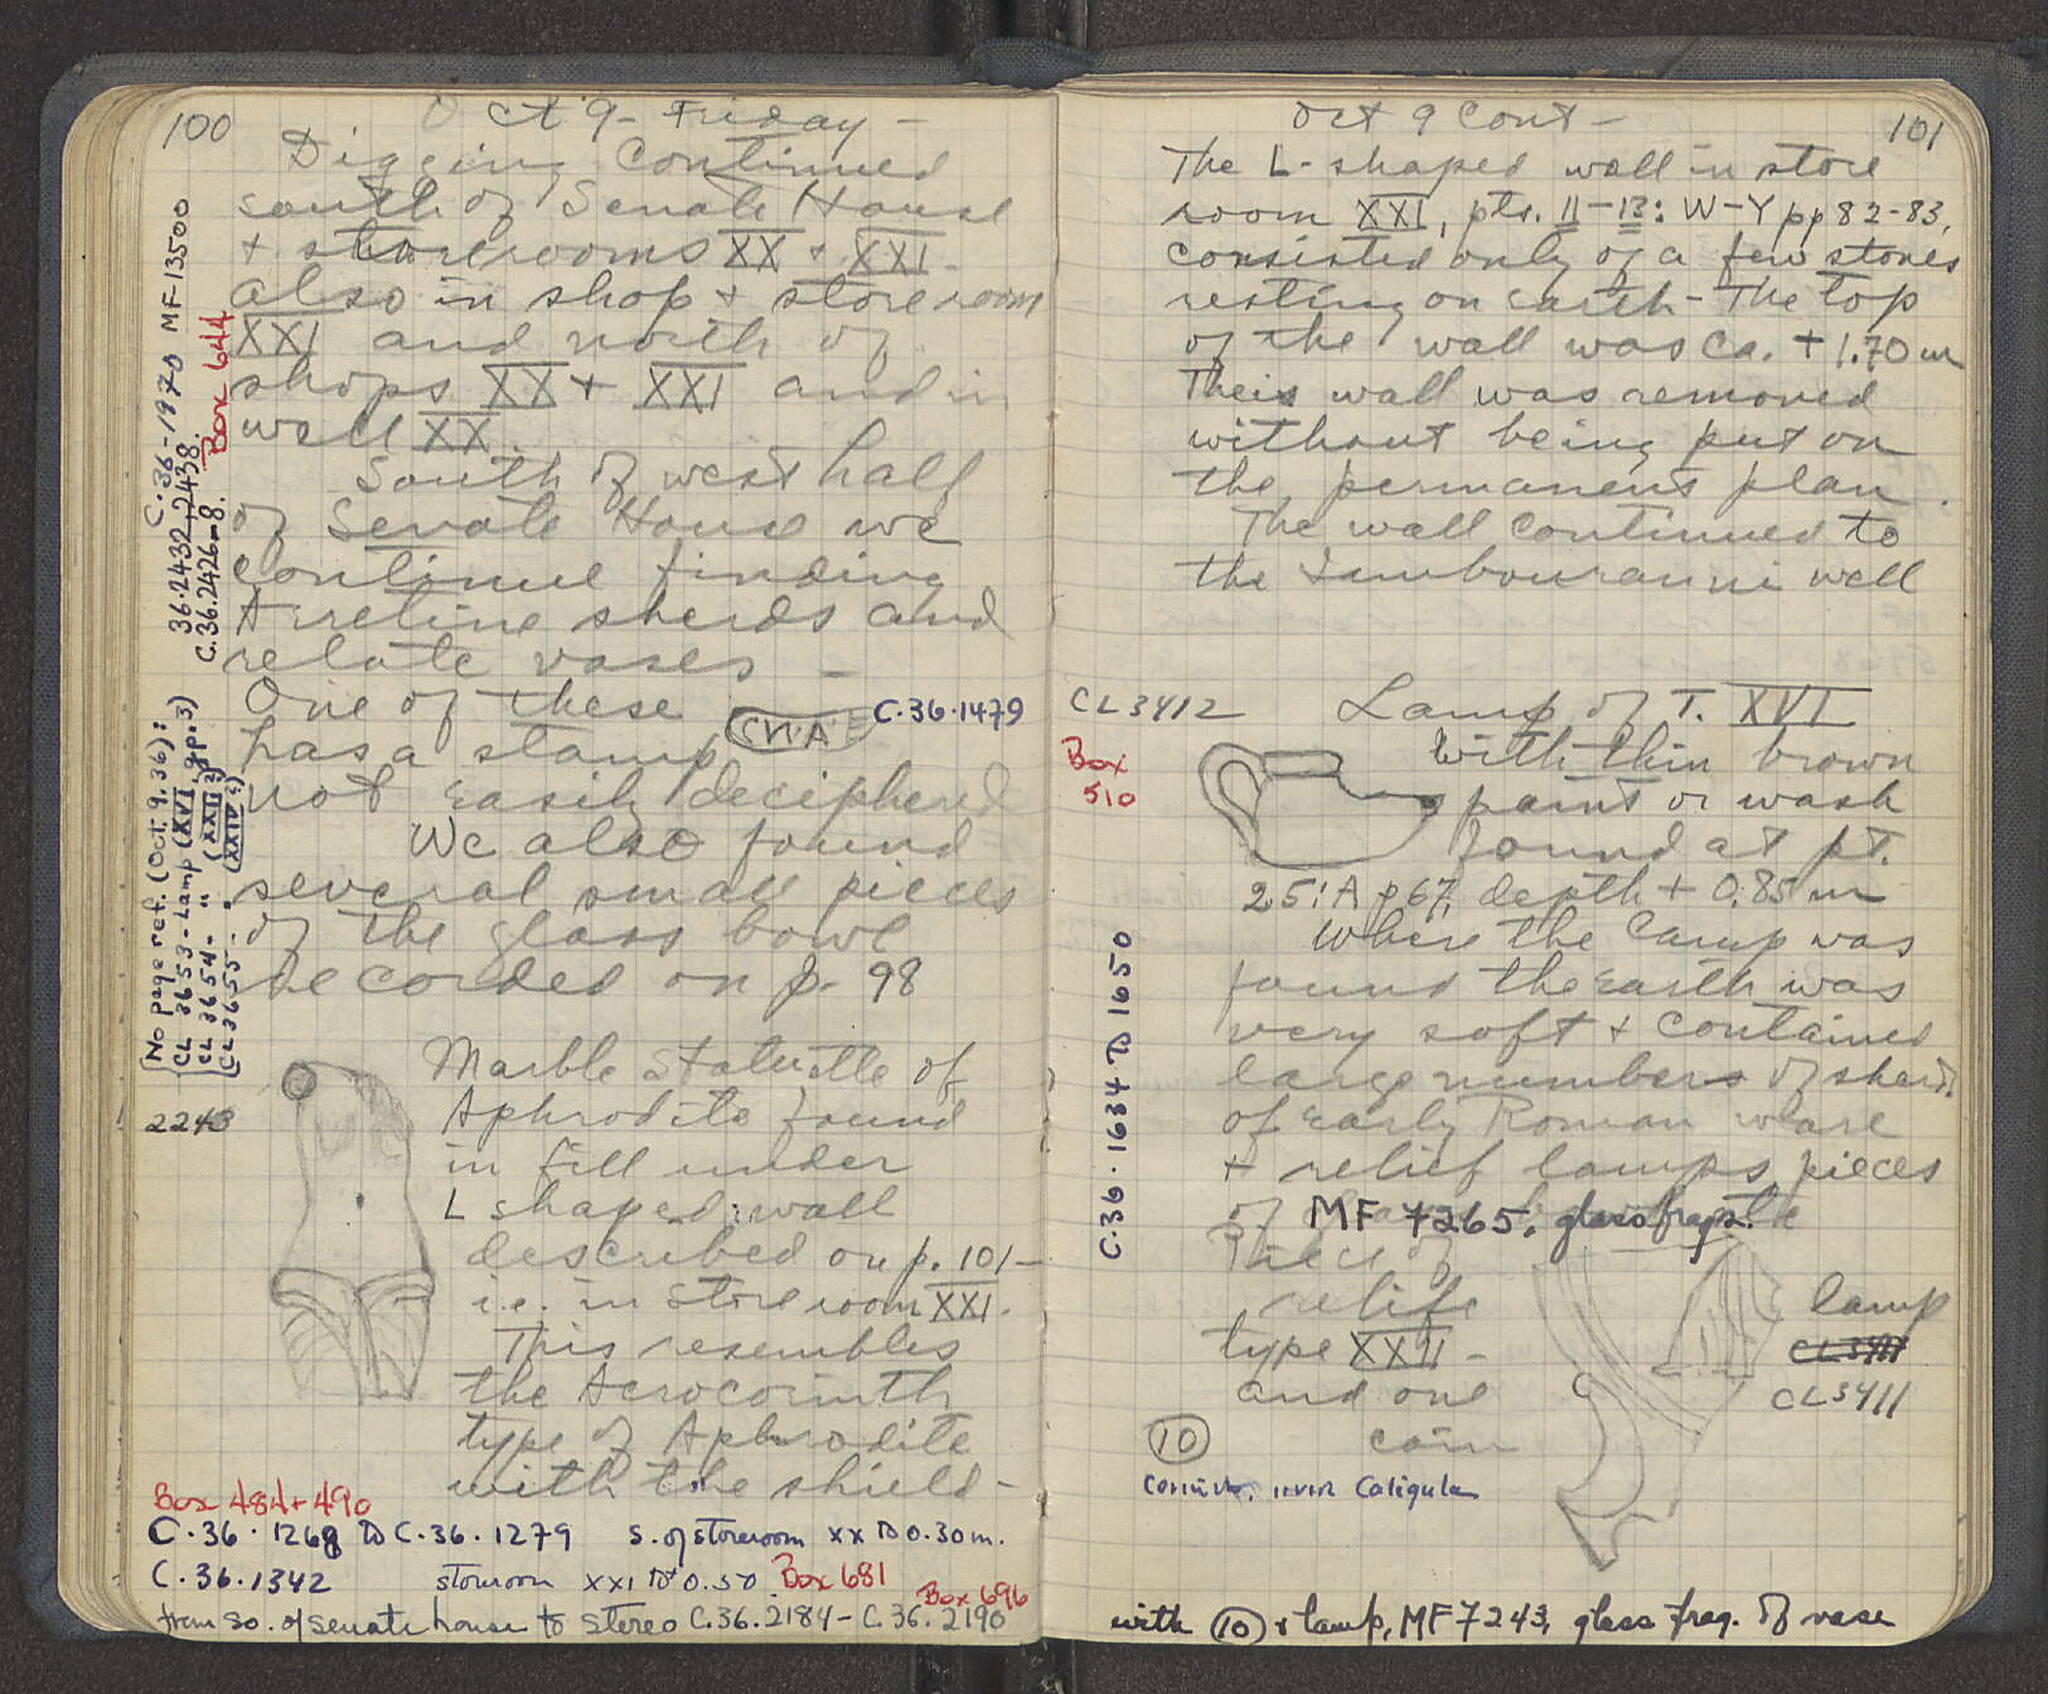 100
Oct 9 - Friday -
Digging continued
south of Senate House
+ storerooms XX + XXI -
also in shop + store room
XXI and north of
shops XX + XXI and in
well XX.
South of west half
of Senate House we
continue finding
Arretine sherds and
relate vases -
One of these
has a stamp
C.36.1479
not easily deciphered
We also found
several small pieces
of the glass bowl
recorded on p. 98
Marble statuette of
Aphrodite found
in fill under
L shaped wall
described on p. 101 -
i.e. in store room XXI.
This resembles
the Acrocorinth
type of Aphrodite
with the shield -
2243
C.36-1970 MF-13500
36.2432, 2438.
Box 644
C.36.2426-8.
[No page ref. (Oct. 9. 36):
CL 3653 - Lamp (XVI, gp. 3)
CL 3654 - " (XXII)
CL 3655 - " (XXIV)
Box 484 + 490
C.36.1268 to C.36.1279 S. of storeroom XX to 0.30 m.
C.36.1342 storeroom XXI to 0.50 Box 681
Box 696
from so. of senate house to stereo C.36.2184 - C.36.2190
Oct 9 Cont -
101
The L-shaped wall in store
room XXI, pts. 11-13: W-Y pp 82-83,
consisted only of a few stones
resting on earth - The top
of the wall was ca. + 1.70 m
Theis wall was removed
without being put on
the permanent plan.
The wall continued to
the well
CL 3412
Box
510
Lamp of T. XVI
with thin brown
paint or wash
found at pt.
25:A p 67, depth + 0.85 m
Where the lamp was
found the earth was
very soft + contained
large numbers of sherds.
of early Roman ware
+ relief lamps, pieces
of
MF 7265, glass frags.
Piece of
relife
type XXII -
and one
coin
lamp
CL 3411
CL 3411
C.36.1634 to 1650
10
Corinth. Caligula
with 10 + lamp, MF 7243, glass frag. of vase